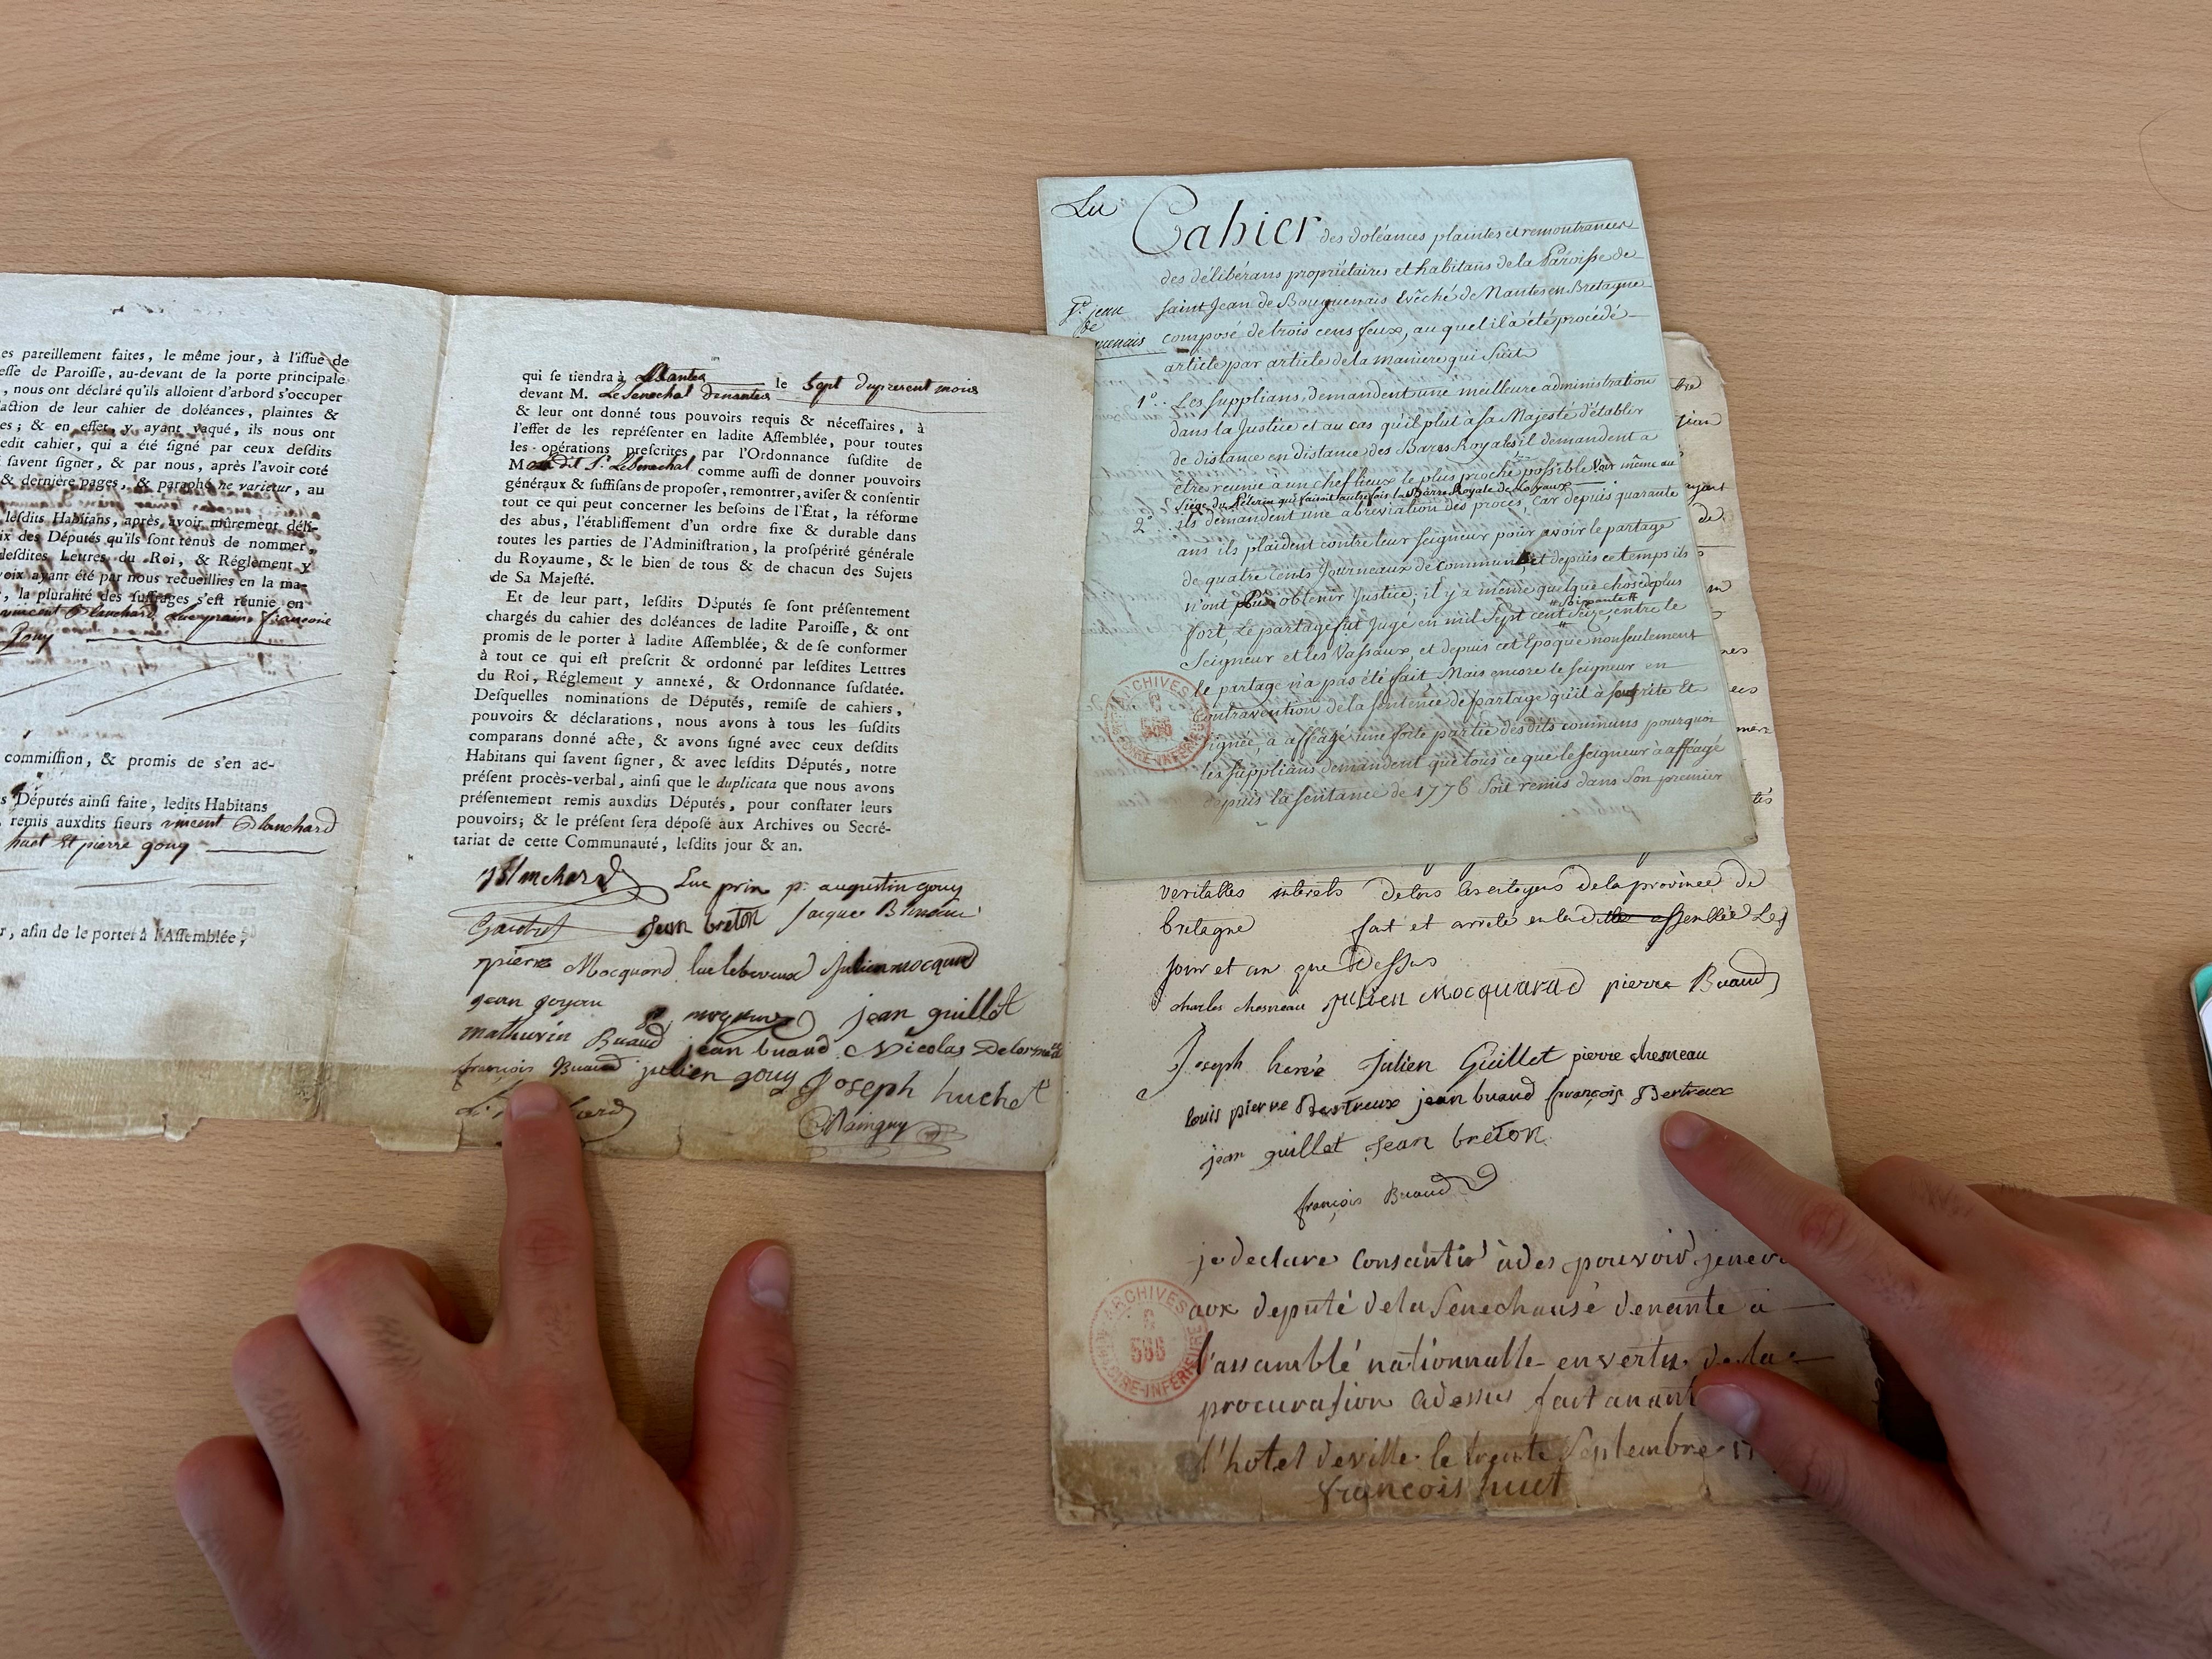 es pareillement faites, le même jour, à l'iſſue de
eſſe de Paroiſſe, au-devant de la porte principale
, nous ont déclaré qu'ils alloient d'arbord s'occuper
action de leur cahier de doléances, plaintes &
es; & en effet, y ayant vaqué, ils nous ont
edit cahier, qui a été ſigné par ceux deſdits
ſavent ſigner, & par nous, après l'avoir coté
& derniere pages, & paraphé ne varietur, au
leſdits Habitans, après avoir mûrement déli-
ix des Députés qu'ils ſont tenus de nommer,
deſdites Lettres du Roi, & Réglement y
voix ayant été par nous recueillies en la ma-
, la pluralité des ſuffrages s'eſt réunie en
vincent Blanchard, Lucprain françois
Gouy
commiſſion, & promis de s'en ac-
s Députés ainſi faite, ledit Habitans
remis auxdits ſieurs vincent Blanchard
huet Et pierre gouy
r, afin de le porter à l'Aſſemblée,
qui ſe tiendra à Nantes le Sept du present mois
devant M. Le Senechal de nantes
& leur ont donné tous pouvoirs requis & néceſſaires, à
l'effet de les repréſenter en ladite Aſſemblée, pour toutes
les opérations preſcrites par l'Ordonnance ſuſdite de
M dit Sr. Le Senechal comme auſſi de donner pouvoirs
généraux & ſuffiſans de propoſer, remontrer, aviſer & conſentir
tout ce qui peut concerner les beſoins de l'État, la réforme
des abus, l'établiſſement d'un ordre fixe & durable dans
toutes les parties de l'Adminiſtration, la proſpérité générale
du Royaume, & le bien de tous & de chacun des Sujets
de Sa Majeſté.
Et de leur part, leſdits Députés ſe ſont préſentement
chargés du cahier des doléances de ladite Paroiſſe, & ont
promis de le porter à ladite Aſſemblée, & de ſe conformer
à tout ce qui eſt preſcrit & ordonné par leſdites Lettres
du Roi, Réglement y annexé, & Ordonnance ſuſdatée.
Deſquelles nominations de Députés, remiſe de cahiers,
pouvoirs & déclarations, nous avons à tous les ſuſdits
comparans donné acte, & avons ſigné avec ceux deſdits
Habitans qui ſavent ſigner, & avec leſdits Députés, notre
préſent procès-verbal, ainſi que le duplicata que nous avons
préſentement remis auxdits Députés, pour conſtater leurs
pouvoirs; & le préſent ſera dépoſé aux Archives ou Secré-
tariat de cette Communauté, leſdits jour & an.
Blanchard Luc prin p. augustin gouy
jean breton Jacques
pierre Mocquard luc lebeveux Julien mocquard
jean goyau jean guillet
mathurin Buaud jean buaud Nicolas Delorme
françois Buaud julien gouy Joseph huchet
Mainguy
Lu
Cahier des doléances plaintes et remontrances
des délibérans propriétaires et habitans de la Paroiſse de
Saint Jean de Bouguenais Evêché de Nantes en Bretagne
St. jean
de
uenais
composé de trois cens feux, au quel il a été procédé
article par article de la maniere qui Suit
1º. Les Supplians demandent une meilleure administration
dans la Justice et au cas qu'il plut à sa Majesté d'établir
de distance en distance des Barres Royales il demandent a
être reunie a un chef lieux le plus proche possible Voir même au
Siege du Pelerin qui faisoit autrefois la Barre Royale de Loyaux
2º. ils demandent une abréviation des procès, car depuis quarante
ans ils plaident contre leur Seigneur pour avoir le partage
de quatre Cents Journeaux de communs et depuis ce temps ils
n'ont pu obtenir Justice; il y a même quelque chose de plus
Soixante
fort, Le partage fut Jugé en mil Sept cent Seize, entre le
Seigneur et les Vassaux, et depuis cet Epoque non seulement
le partage n'a pas été fait Mais encore le Seigneur en
Contravention de la sentence de partage qu'il a souscrite Et
Signée, a afféagé une forte partie des dits communs pourquoi
les Supplians demandent que tous ce que le Seigneur a afféagé
depuis la Sentance de 1776 Soit remis dans Son premier
ARCHIVES
LOIRE-INFÉRIEURE
veritables interets de tous les citoyens de la province de
bretagne fait et arreté en la dite assemblée Les
Jour et an que Dessus
charles chesneau julien mocquard pierre Buaud
Joseph hervé Julien Guillet pierre chesneau
louis pierre Bertreux jean buaud françois Bertreux
jean guillet jean breton
françois Buaud
je declare Consantir à des pouvoir jenera
aux deputé de la Senechausé de nante a
l'assamblé nationnalle en vertu de la
procuration cidessus fait a nant
l'hotel de ville le trente Septembre 17
françois huet
ARCHIVES
586
LOIRE-INFÉRIEURE